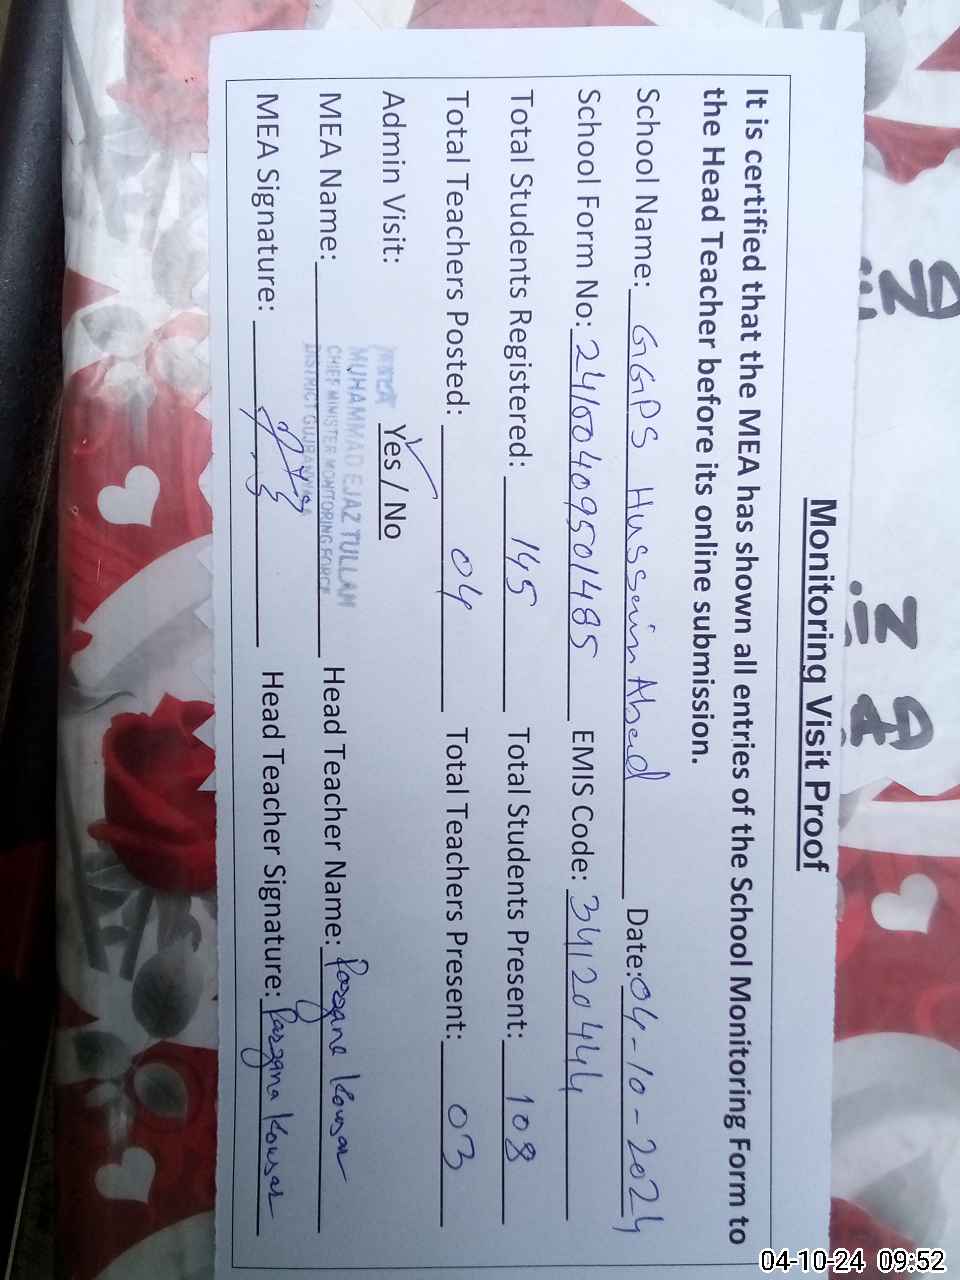 Monitoring Visit Proof
It is certified that the MEA has shown all entries of the School Monitoring Form to
the Head Teacher before its online submission.
School Name: GGPS Hussain Abad Date: 04-10-2024
School Form No: 24100409501485 EMIS Code: 34120444
Total Students Registered: 145 Total Students Present: 108
Total Teachers Posted: 04 Total Teachers Present: 03
Admin Visit: Yes / No
MEA
MUHAMMAD EJAZ TULLAH
CHIEF MINISTER MONITORING FORCE
DISTRICT GUJRANWALA
MEA Name: Head Teacher Name: Farzana Kousar
MEA Signature: Head Teacher Signature: Farzana Kousar
04-10-24 09:52